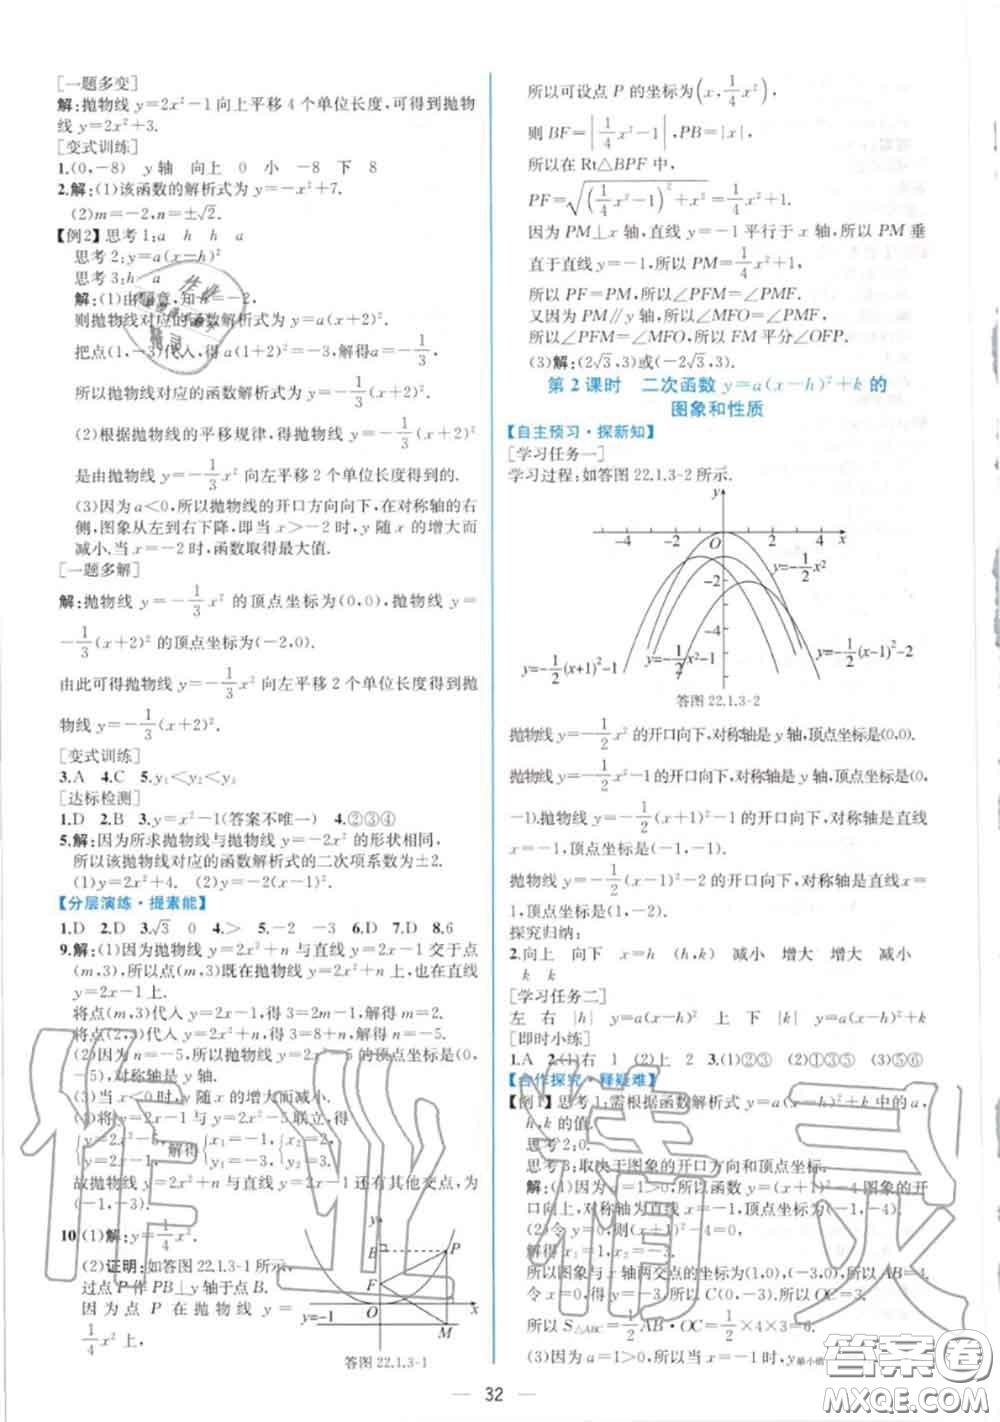 [一题多变]
解:抛物线 y=2x²-1 向上平移 4 个单位长度,可得到抛物
线 y=2x²+3.
[变式训练]
1.(0,-8) y 轴 向上 0 小 -8 下 8
2.解:(1)该函数的解析式为 y=-x²+7.
(2)m=-2,n=±√2.
【例2】思考 1:a h h a
思考 2:y=a(x-h)²
思考 3:h a
解:(1)由题意,知 h=-2,
则抛物线对应的函数解析式为 y=a(x+2)².
把点(1,-3)代入,得 a(1+2)²=-3,解得 a=-1/3,
所以抛物线对应的函数解析式为 y=-1/3(x+2)².
(2)根据抛物线的平移规律,得抛物线 y=-1/3(x+2)²
是由抛物线 y=-1/3x² 向左平移 2 个单位长度得到的.
(3)因为 a<0,所以抛物线的开口方向向下,在对称轴的右
侧,图象从左到右下降,即当 x>-2 时,y 随 x 的增大而
减小.当 x=-2 时,函数取得最大值.
[一题多解]
解:抛物线 y=-1/3x² 的顶点坐标为(0,0),抛物线 y=
-1/3(x+2)² 的顶点坐标为(-2,0).
由此可得抛物线 y=-1/3x² 向左平移 2 个单位长度得到抛
物线 y=-1/3(x+2)².
[变式训练]
3.A 4.C 5.y₁<y₂<y₃
[达标检测]
1.D 2.B 3.y=x²-1(答案不唯一) 4.②③④
5.解:因为所求抛物线与抛物线 y=-2x² 的形状相同,
所以该抛物线对应的函数解析式的二次项系数为±2.
(1)y=2x²+4. (2)y=-2x²-2.
【分层演练·提素能】
1.D 2.D 3.√3 0 4.> 5.-2 -3 6.D 7.D 8.6
9.解:(1)因为抛物线 y=2x²+n 与直线 y=2x-1 交于点
(m,3),所以点(m,3)既在抛物线 y=2x²+n 上,也在直线
y=2x-1 上.
将点(m,3)代入 y=2x-1,得 3=2m-1,得 m=2.
将点(2,3)代入 y=2x²+n,得 3=8+n,解得 n=-5.
(2)因为 n=-5,所以抛物线 y=2x²-5 的顶点坐标是(0,
-5),对称轴是 y 轴.
(3)当 x<0 时,y 随 x 的增大而减小.
(4)将 y=2x-1 与 y=2x²-5 联立,得
{y=2x-1, y=2x²-5, 解得{x₁=-1, y₁=-3, {x₂=2, y₂=3.
故抛物线 y=2x²-5 与直线 y=2x-1 还有其他交点,为
(-1,-3).
10.(1)解:y=1/4x².
(2)证明:如答图 22.1.3-1 所示,
过点 P 作 PB⊥y 轴于点 B.
因为点 P 在抛物线 y=
1/4x² 上,
y
B
P
F
O
x
y=-1
M
答图 22.1.3-1
所以可设点 P 的坐标为(x,1/4x²),
则 BF=|1/4x²-1|,PB=|x|,
所以在 Rt△BPF 中,
PF=√((1/4x²-1)²+x²)=1/4x²+1.
因为 PM⊥x 轴,直线 y=-1 平行于 x 轴,所以 PM 垂
直于直线 y=-1,所以 PM=1/4x²+1,
所以 PF=PM,所以∠PFM=∠PMF.
又因为 PM∥y 轴,所以∠MFO=∠PMF,
所以∠PFM=∠MFO,所以 FM 平分∠OFP.
(3)解:(2√3,3)或(-2√3,3).
第 2 课时 二次函数 y=a(x-h)²+k 的
图象和性质
【自主预习·探新知】
[学习任务一]
学习过程:如答图 22.1.3-2 所示.
y
-4 -2 O 2 4 x
-2
-4
y=-1/2x²
y=-1/2(x+1)²-1
y=-1/2x²-1
y=-1/2(x-1)²-2
答图 22.1.3-2
抛物线 y=-1/2x² 的开口向下,对称轴是 y 轴,顶点坐标是(0,0).
抛物线 y=-1/2x²-1 的开口向下,对称轴是 y 轴,顶点坐标是(0,
-1).抛物线 y=-1/2(x+1)²-1 的开口向下,对称轴是直线
x=-1,顶点坐标是(-1,-1).
抛物线 y=-1/2(x-1)²-2 的开口向下,对称轴是直线 x=
1,顶点坐标是(1,-2).
探究归纳:
2.向上 向下 x=h (h,k) 减小 增大 增大 减小
k k
[学习任务二]
左 右 |h| y=a(x-h)² 上 下 |k| y=a(x-h)²+k
[即时小练]
1.A 2.(1)右 1 (2)上 2 3.(1)②③ (2)①③④ (3)⑤⑥
【合作探究·释疑难】
【例1】思考 1:需根据函数解析式 y=a(x-h)²+k 中的 a,
h,k 的值.
思考 2:0.
思考 3:取决于图象的开口方向和顶点坐标.
解:(1)因为 a=1>0,所以函数 y=(x+1)²-4 图象的开
口向上,对称轴为直线 x=-1,顶点坐标为(-1,-4).
(2)令 y=0,则(x+1)²-4=0,
解得 x₁=1,x₂=-3.
所以图象与 x 轴两交点的坐标为(1,0),(-3,0),所以 AB=4.
令 x=0,得 y=-3,所以 C(0,-3).所以 OC=3.
所以 S△ABC=1/2AB·OC=1/2×4×3=6.
(3)因为 a=1>0,所以当 x=-1 时,y最小值
32
作业精灵
答案圈
MXQE.COM